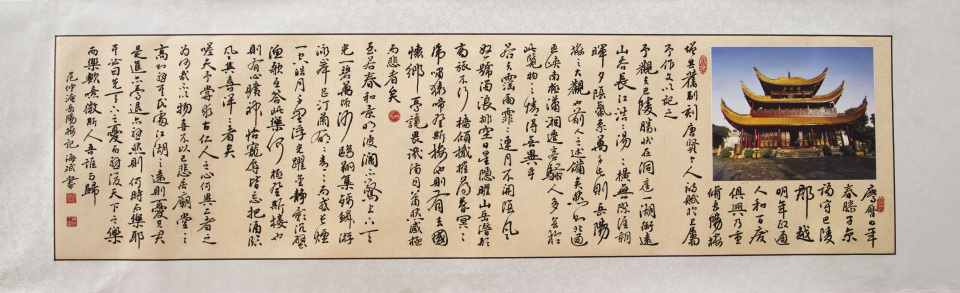 慶曆四年
春滕子京
謫守巴陵
郡越
明年政通
人和百廢
俱興乃重
脩岳陽樓
增其舊制刻唐賢今人詩賦於上屬
予作文以記之
予觀夫巴陵勝狀在洞庭一湖銜遠
山吞長江浩浩湯湯橫無際涯朝
暉夕陰氣象萬千此則岳陽
樓之大觀也前人之述備矣然則北通
巫峽南極瀟湘遷客騷人多會於
此覽物之情得無異乎
若夫霪雨霏霏連月不開陰風
怒號濁浪排空日星隱曜山岳潛形
商旅不行檣傾楫摧薄暮冥冥
虎嘯猿啼登斯樓也則有去國
懷鄉憂讒畏譏滿目蕭然感極
而悲者矣
至若春和景明波瀾不驚上下天
光一碧萬頃沙鷗翔集錦鱗游
泳岸芷汀蘭郁郁青青而或長煙
一空皓月千里浮光躍金靜影沉璧
漁歌互答此樂何極登斯樓也
則有心曠神怡寵辱皆忘把酒臨
風其喜洋洋者矣
嗟夫予嘗求古仁人之心或異二者之
為何哉不以物喜不以己悲居廟堂之
高則憂其民處江湖之遠則憂其君
是進亦憂退亦憂然則何時而樂耶
其必曰先天下之憂而憂後天下之樂
而樂歟噫微斯人吾誰與歸
范仲淹岳陽樓記 海斌書